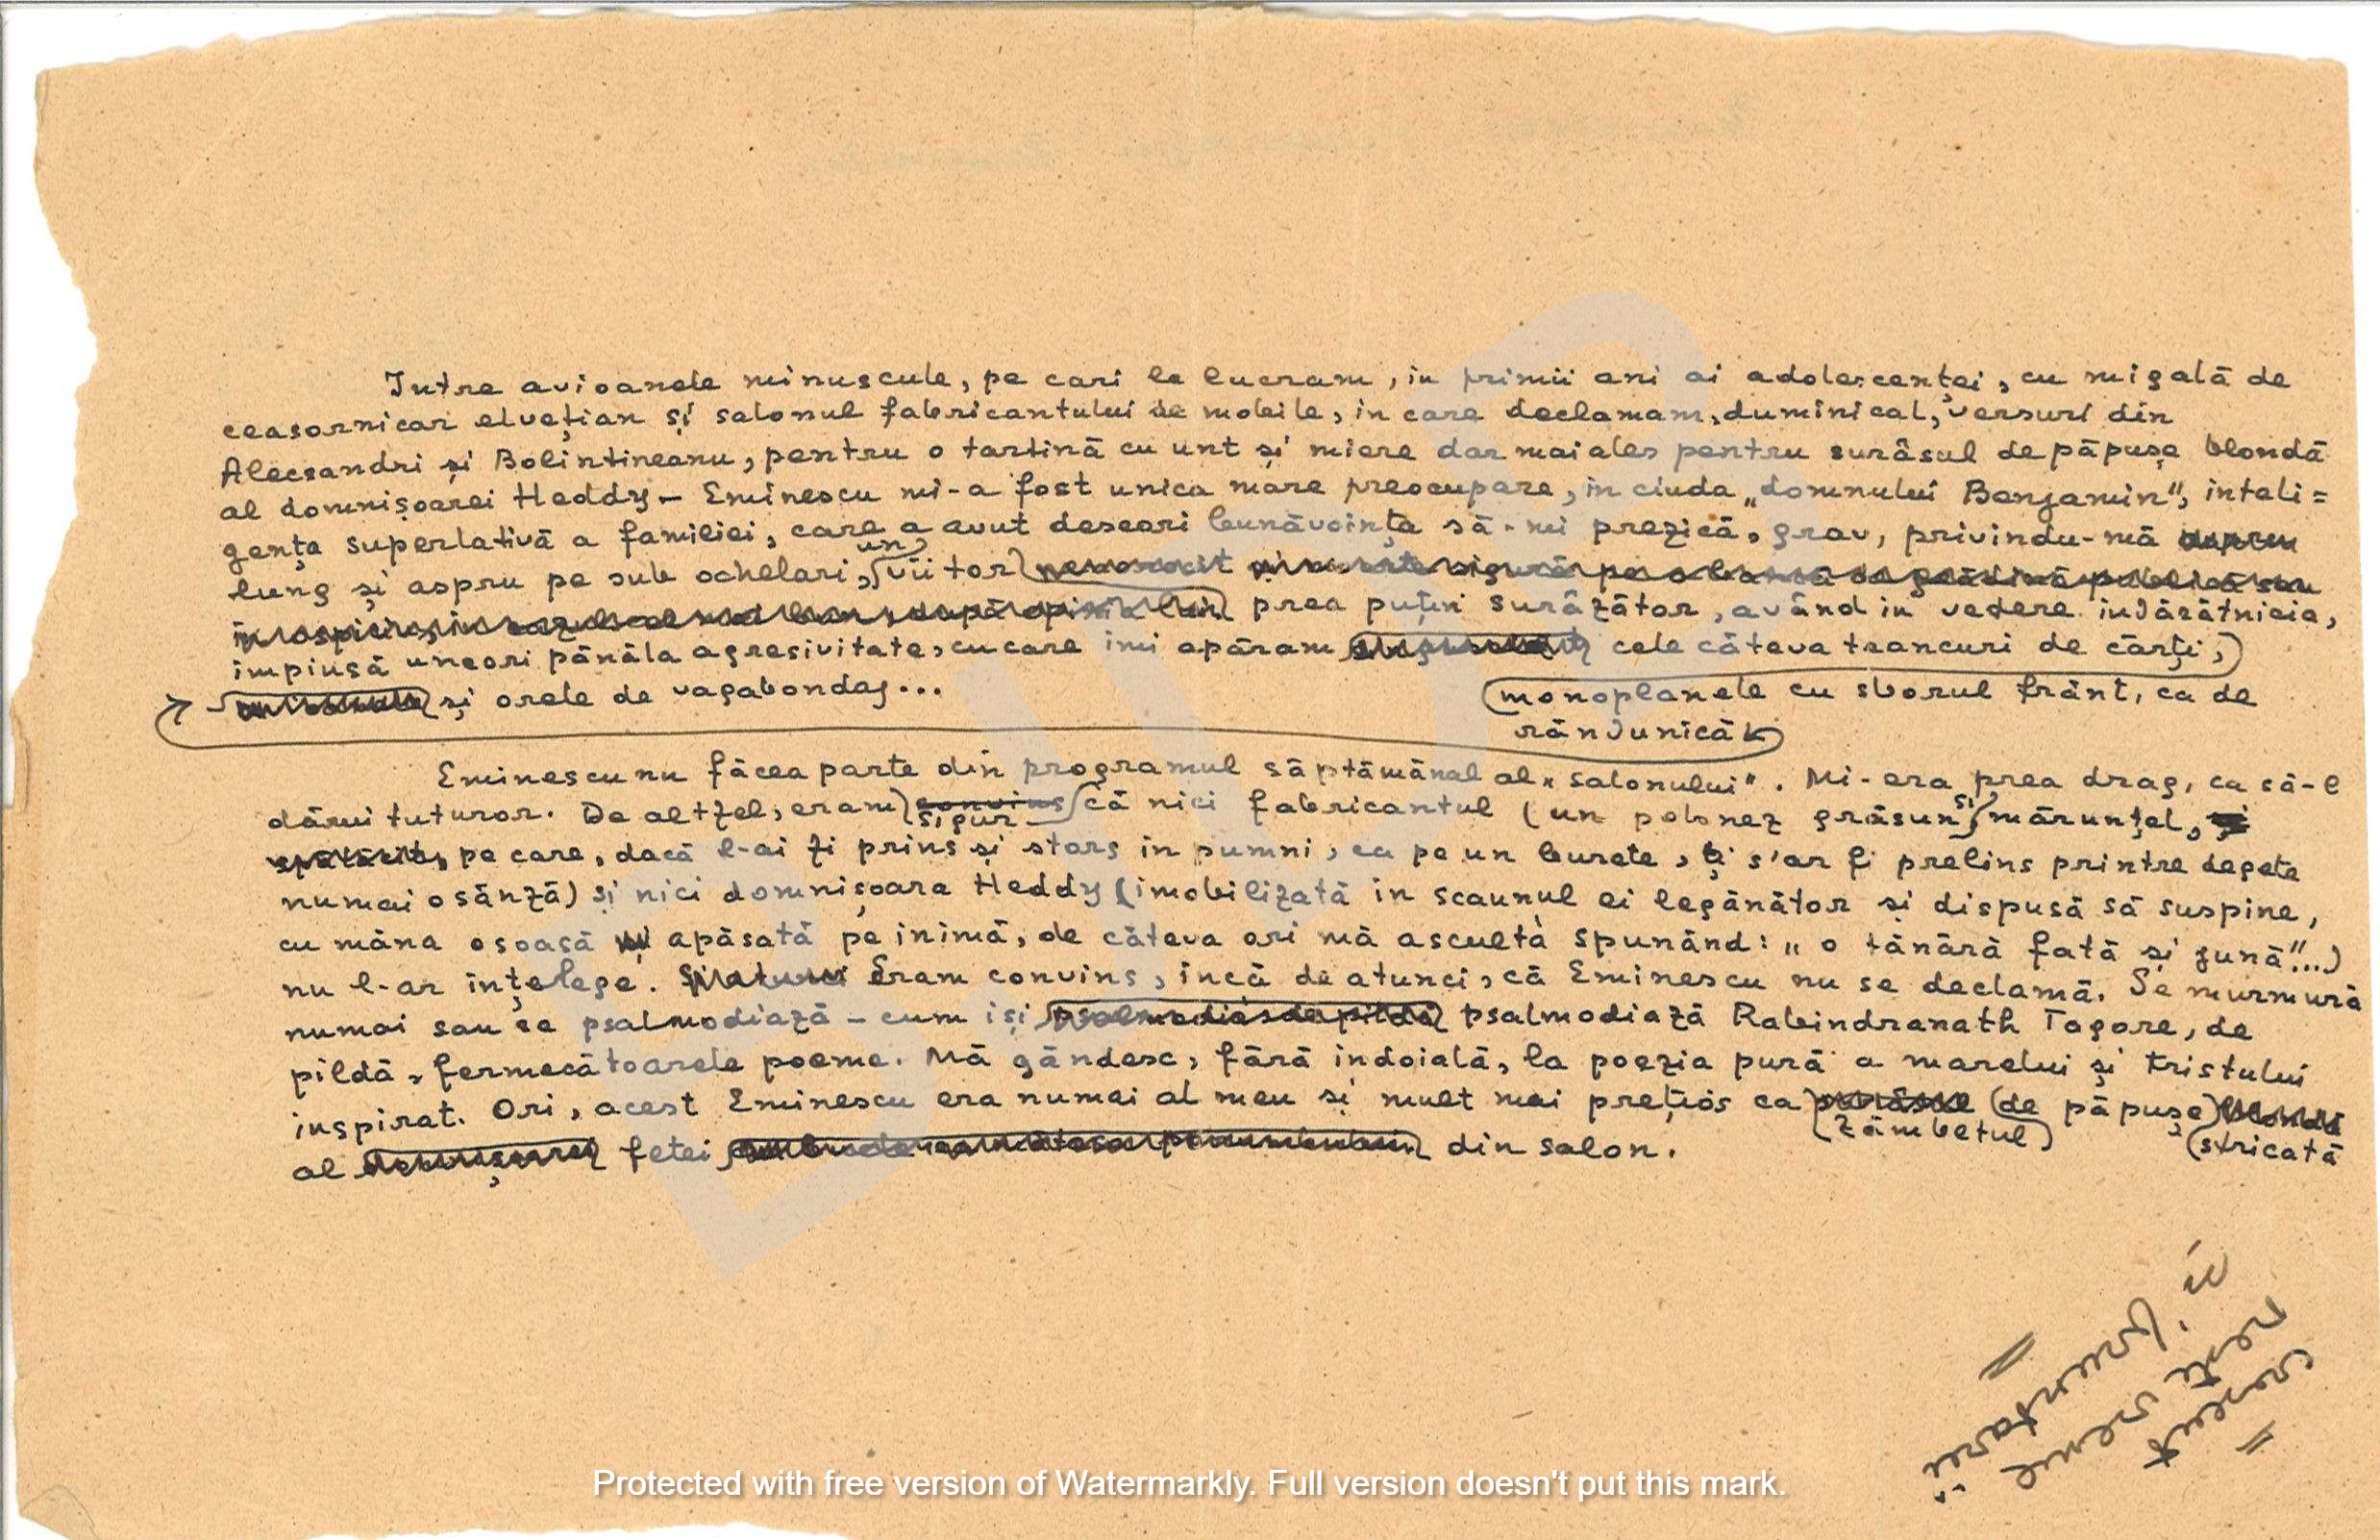 Intre avioanele minuscule, pe cari le lucram, in primii ani ai adolescenței, cu migală de
ceasornicar elvețian și salonul fabricantului de mobile, in care declamam, duminical, versuri din
Alecsandri și Bolintineanu, pentru o tartină cu unt și miere dar mai ales pentru surâsul de păpușe blondă
al domnișoarei Heddy – Eminescu mi-a fost unica mare preocupare, in ciuda „domnului Benjamin”, inteli=
gența superlativă a familiei, care a avut deseori bunăvoința să-mi prezică, grav, privindu-mă
lung și aspru pe sub ochelari, un viitor
prea puțin surâzător, având in vedere indărătnicia,
impinsă uneori până la agresivitate, cu care imi apăram cele câteva teancuri de cărți,
și orele de vagabondaj...
monoplanele cu sborul frânt, ca de
rândunică
Eminescu nu făcea parte din programul săptămânal al „salonului". Mi-era prea drag, ca să-l
dărui tuturor. De altfel, eram convins că nici fabricantul (un polonez grăsun și mărunțel, și
sigur
pe care, dacă l-ai fi prins și stors in pumni, ca pe un burete, ți s'ar fi prelins printre degete
numai osânză) și nici domnișoara Heddy (imobilizată in scaunul ei legănător și dispusă să suspine,
cu mâna osoasă apăsată pe inimă, de câteva ori mă asculta spunând: „o tânără fată și jună”...)
nu l-ar ințelege. Eram convins, incă de atunci, că Eminescu nu se declamă. Se murmură
numai sau se psalmodiază – cum iși psalmodiază de pildă psalmodiază Rabindranath Tagore, de
pildă, fermecătoarele poeme. Mă gândesc, fără indoială, la poezia pură a marelui și tristului
inspirat. Ori, acest Eminescu era numai al meu și mult mai prețios ca surâsul de păpușe blondă
zâmbetul
stricată
al domnișoarei fetei din salon.
Protected with free version of Watermarkly. Full version doesn't put this mark.